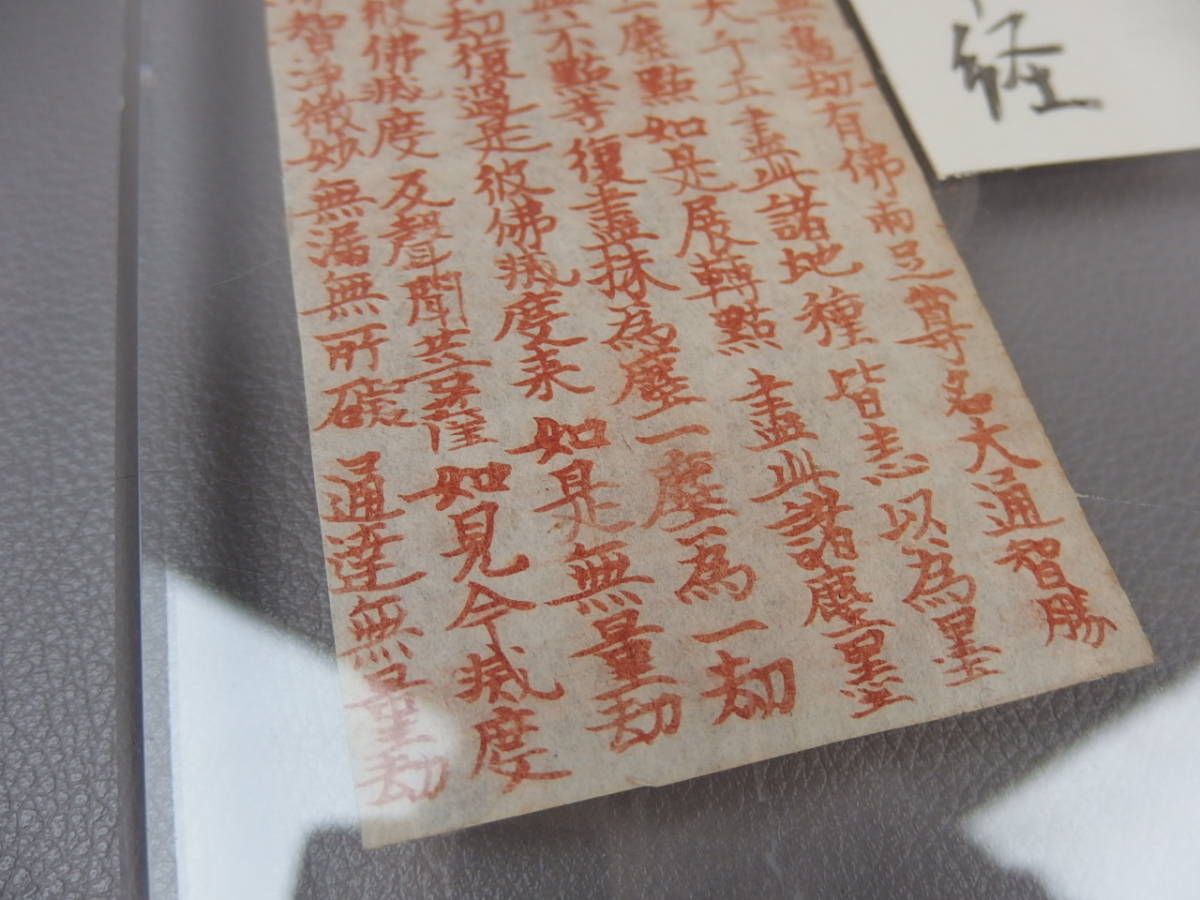 経
無邊劫有佛兩足尊名大通智勝
大千土盡此諸地種皆悉以為墨
一塵點如是展轉點盡此諸塵墨
與不點等復盡抹為塵一塵為一劫
劫復過是彼佛滅度来如是無量劫
彼佛滅度及聲聞菩薩如見今滅度
智淨微妙無漏無所礙通達無量劫